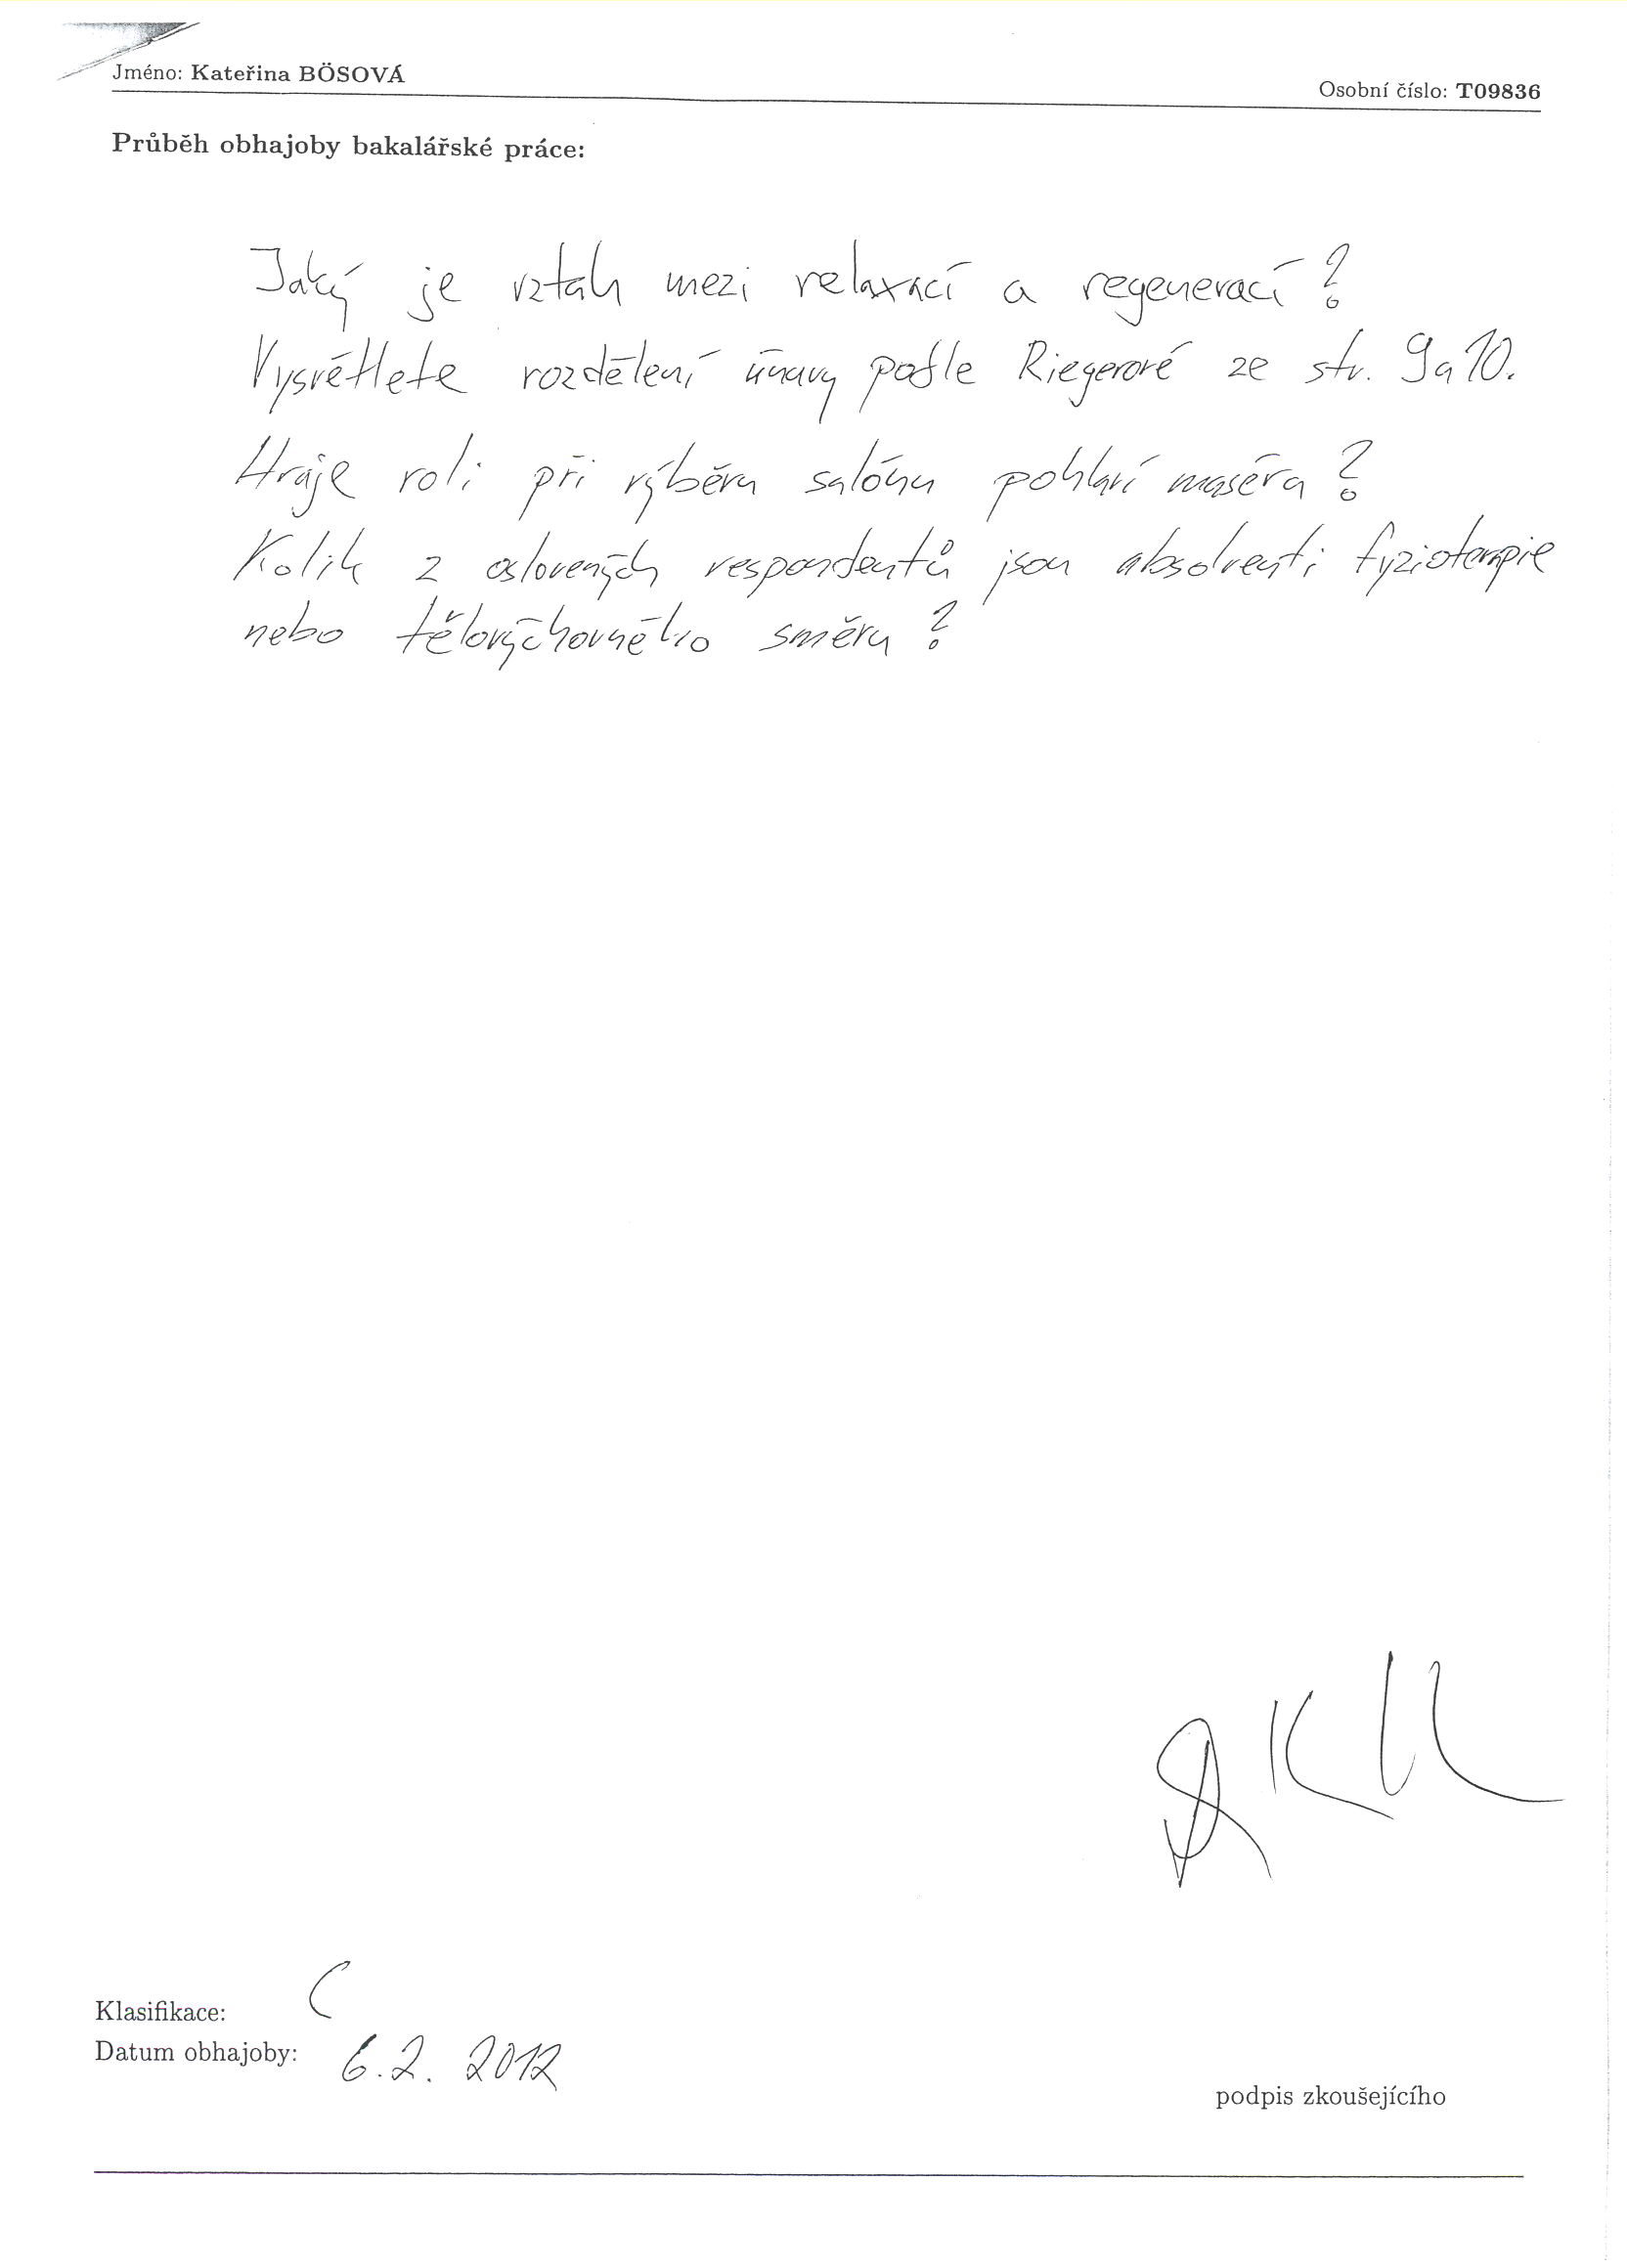 Jméno: Kateřina BÖSOVÁ
Osobní číslo: T09836
Průběh obhajoby bakalářské práce:
Jaký je vztah mezi relaxací a regenerací?
Vysvětlete rozdělení únavy podle Riegerové ze str. 9 a 10.
Hraje roli při výběru salónu pohlaví maséra?
Kolik z oslovených respondentů jsou absolventi fyzioterapie
nebo tělovýchovného směru?
Klasifikace: C
Datum obhajoby: 6.2. 2012
podpis zkoušejícího